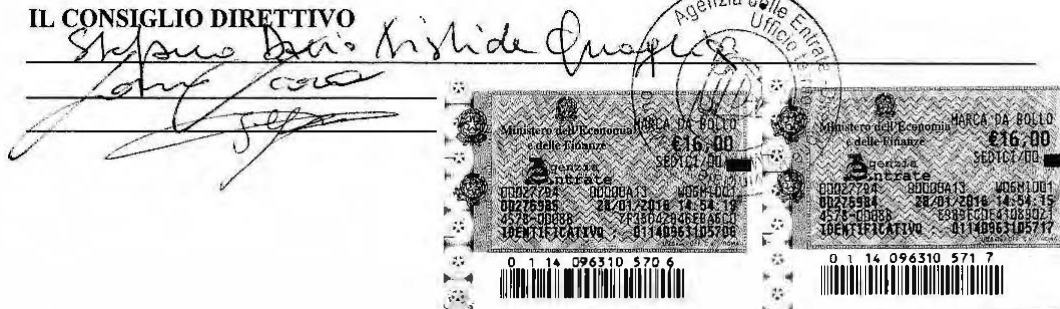 IL CONSIGLIO DIRETTIVO
Agenzia delle Entrate
Ufficio
Stefano Dario Aristide Quaglia
Ministero dell'Economia
e delle Finanze
MARCA DA BOLLO
€16,00
SEDICI/00
Agenzia
Entrate
00027794 00000A13 W06M1001
00276985 28/01/2016 14:54:15
4578-00088
IDENTIFICATIVO : 01140963105706
0 1 14 096310 570 6
Ministero dell'Economia
e delle Finanze
MARCA DA BOLLO
€16,00
SEDICI/00
Agenzia
Entrate
00027794 00000A13 W06M1001
00276986 28/01/2016 14:54:19
4578-00088
IDENTIFICATIVO : 01140963105717
0 1 14 096310 571 7